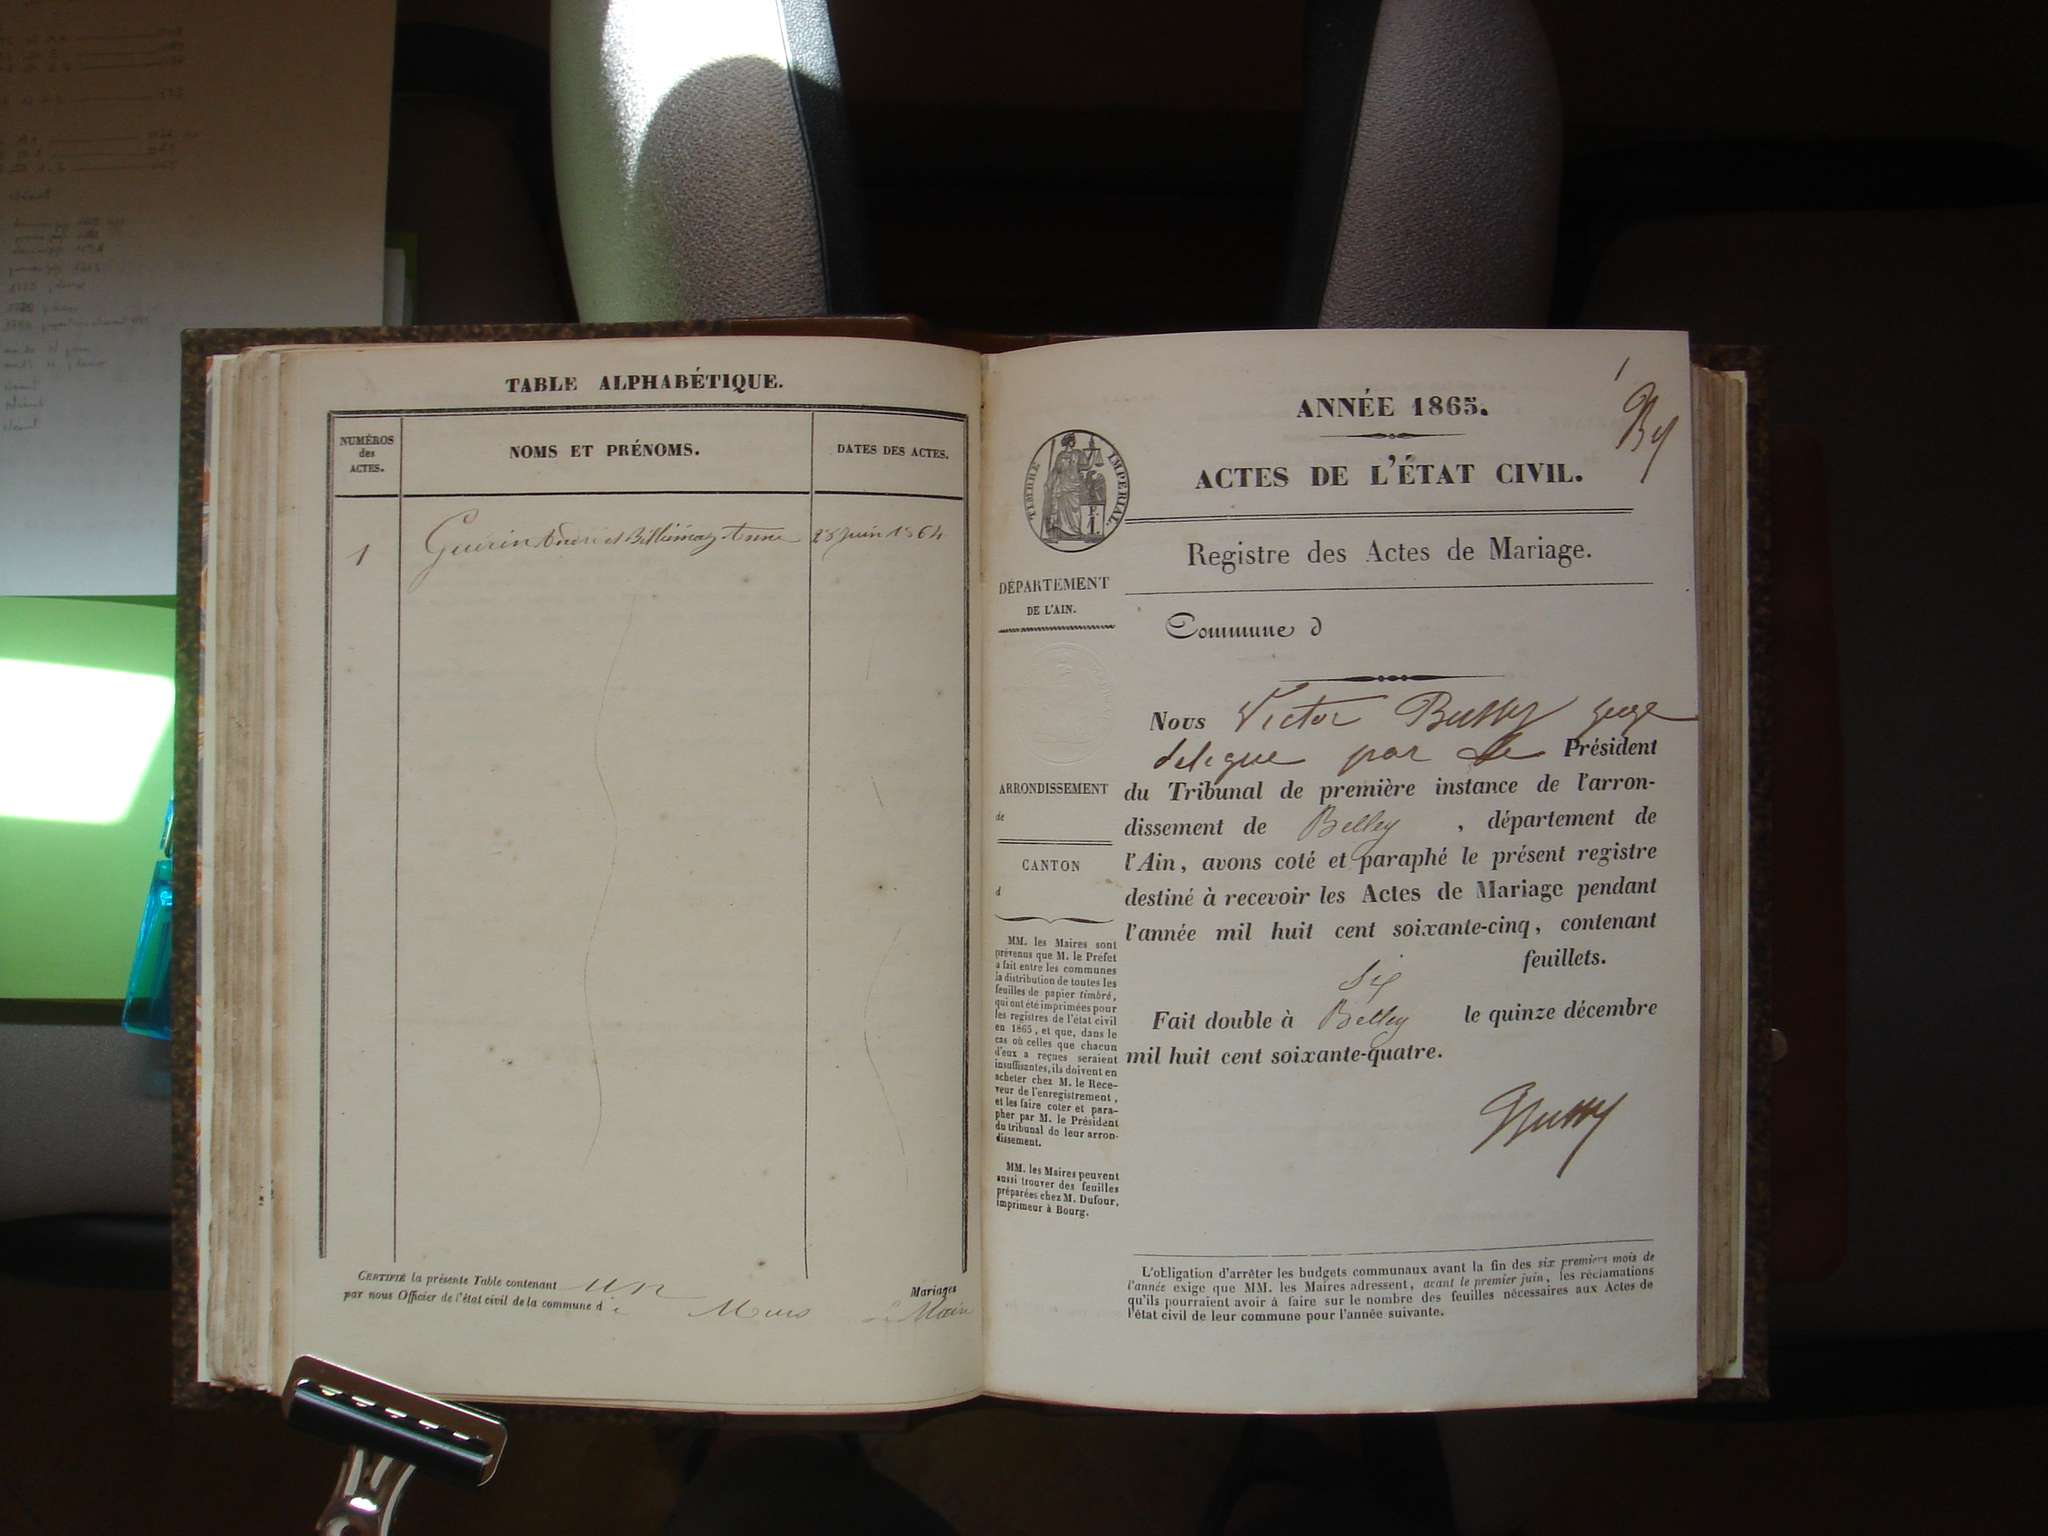 TABLE ALPHABÉTIQUE.
NUMÉROS
des
ACTES.
NOMS ET PRÉNOMS.
DATES DES ACTES.
1 Guérin André et Billiémaz Anne 28 juin 1864
CERTIFIÉ la présente Table contenant un Mariages
par nous Officier de l'état civil de la commune d e Murs le Maire
1
By
ANNÉE 1865.
ACTES DE L'ÉTAT CIVIL.
TIMBRE IMPERIAL.
Registre des Actes de Mariage.
DÉPARTEMENT
DE L'AIN.
Commune d
Nous Victor Bussy juge
delegue par le Président
du Tribunal de première instance de l'arron-
dissement de Belley , département de
l'Ain, avons coté et paraphé le présent registre
destiné à recevoir les Actes de Mariage pendant
l'année mil huit cent soixante-cinq, contenant
six feuillets.
Fait double à Belley le quinze décembre
mil huit cent soixante-quatre.
Bussy
ARRONDISSEMENT
de
CANTON
d
MM. les Maires sont
prévenus que M. le Préfet
a fait entre les communes
la distribution de toutes les
feuilles de papier timbré,
qui ont été imprimées pour
les registres de l'état civil
en 1865, et que, dans le
cas où celles que chacun
d'eux a reçues seraient
insuffisantes, ils doivent en
acheter chez M. le Rece-
veur de l'enregistrement,
et les faire coter et para-
pher par M. le Président
du tribunal de leur arron-
dissement.
MM. les Maires peuvent
aussi trouver des feuilles
préparées chez M. Dufour,
imprimeur à Bourg.
L'obligation d'arrêter les budgets communaux avant la fin des six premiers mois de
l'année exige que MM. les Maires adressent, avant le premier juin, les réclamations
qu'ils pourraient avoir à faire sur le nombre des feuilles nécessaires aux Actes de
l'état civil de leur commune pour l'année suivante.